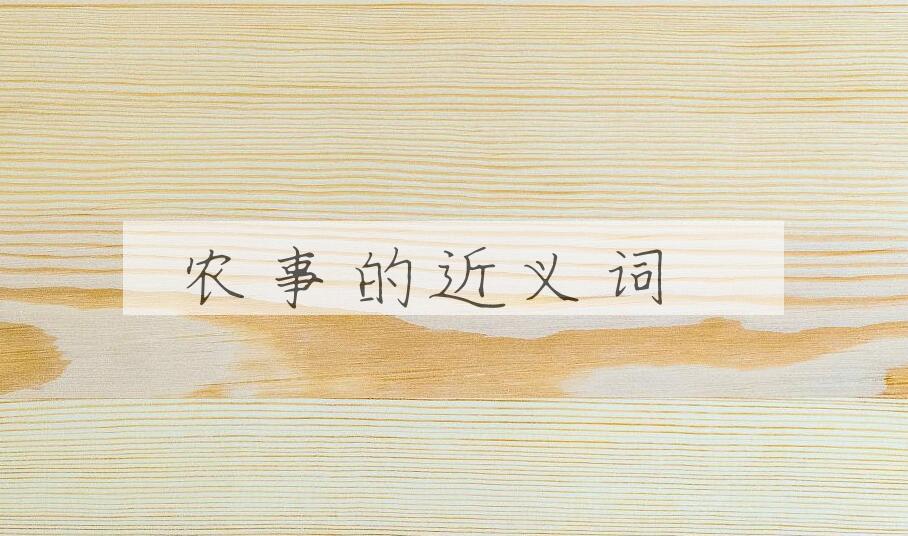 农事的近义词